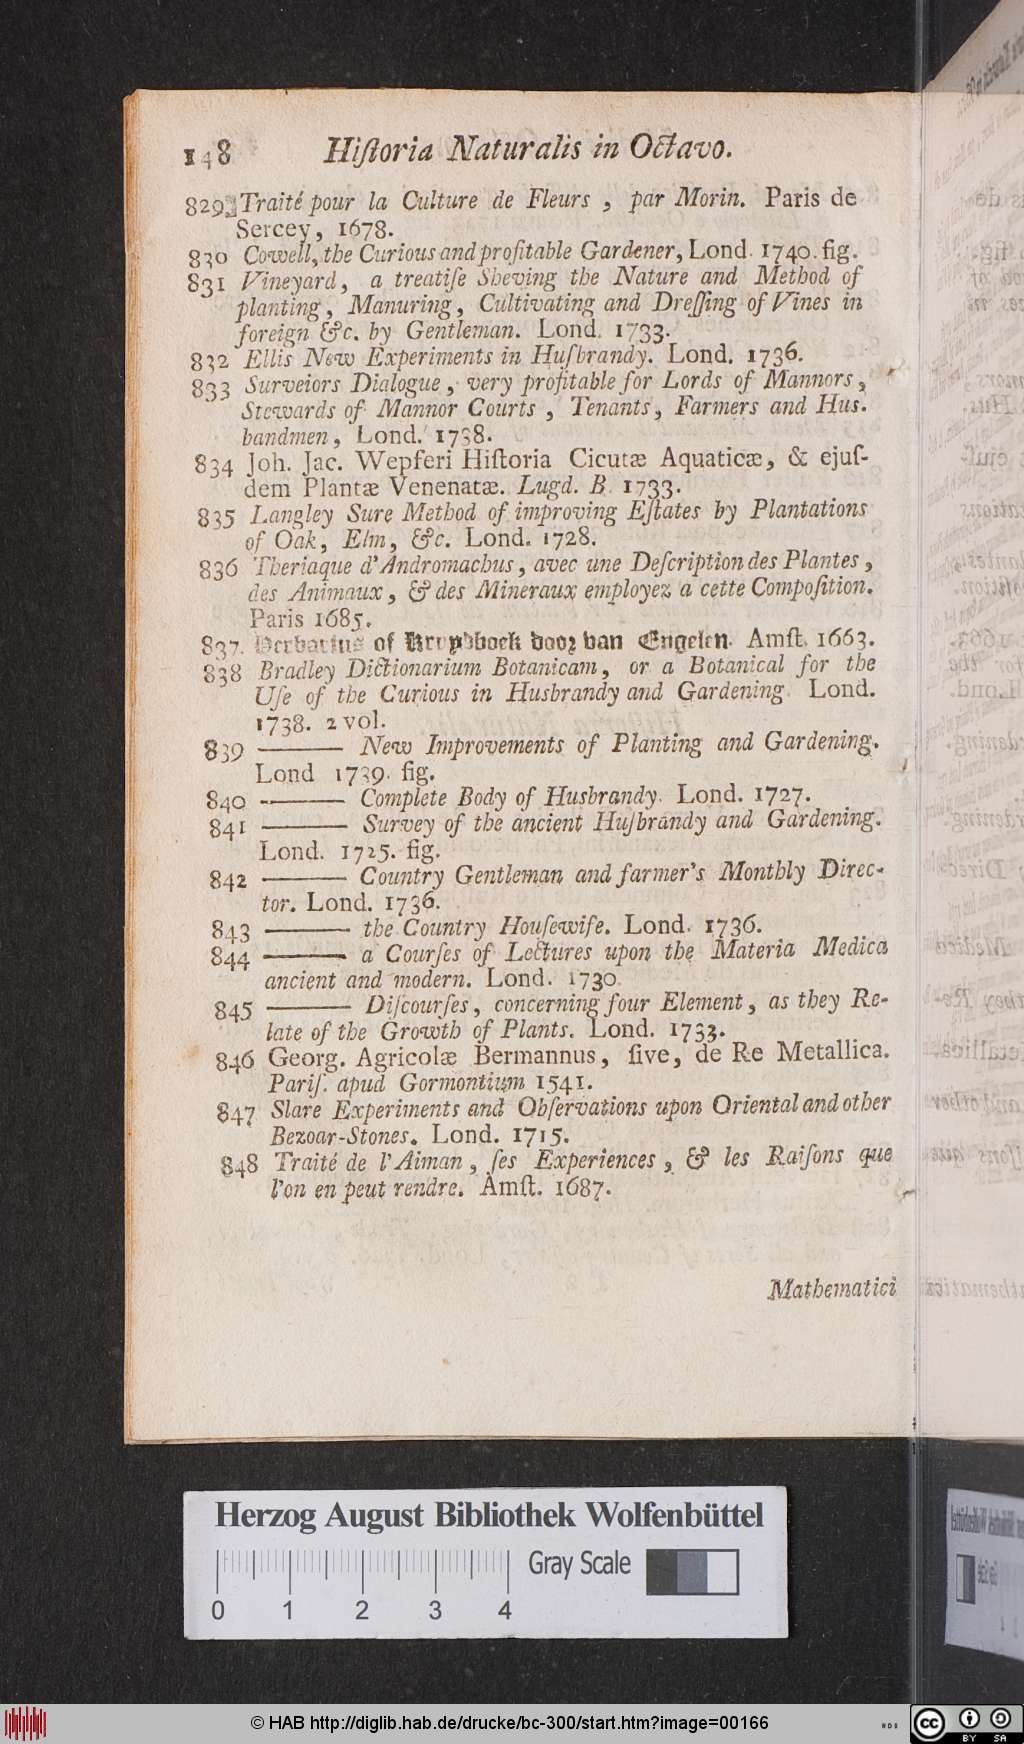 148 Hiſtoria Naturalis in Octavo.
829 Traité pour la Culture de Fleurs , par Morin. Paris de
Sercey, 1678.
830 Cowell, the Curious and profitable Gardener, Lond. 1740. fig.
831 Vineyard, a treatiſe Sheving the Nature and Method of
planting, Manuring, Cultivating and Dreſſing of Vines in
foreign &c. by Gentleman. Lond. 1733.
832 Ellis New Experiments in Huſbrandy. Lond. 1736.
833 Surveiors Dialogue, very profitable for Lords of Mannors,
Stewards of Mannor Courts , Tenants, Farmers and Hus.
bandmen, Lond. 1738.
834 Joh. Jac. Wepferi Hiſtoria Cicutæ Aquaticæ, & ejuſ-
dem Plantæ Venenatæ. Lugd. B. 1733.
835 Langley Sure Method of improving Eſtates by Plantations
of Oak, Elm, &c. Lond. 1728.
836 Theriaque d'Andromachus, avec une Deſcription des Plantes,
des Animaux, & des Mineraux employez a cette Compoſition.
Paris 1685.
837. Herbarius of Kruydboek door van Engelen. Amſt. 1663.
838 Bradley Dictionarium Botanicam, or a Botanical for the
Uſe of the Curious in Husbrandy and Gardening. Lond.
1738. 2 vol.
839 ——— New Improvements of Planting and Gardening.
Lond 1739. fig.
840 ——— Complete Body of Husbrandy. Lond. 1727.
841 ——— Survey of the ancient Huſbrandy and Gardening.
Lond. 1725. fig.
842 ——— Country Gentleman and farmer's Monthly Direc-
tor. Lond. 1736.
843 ——— the Country Houſewife. Lond. 1736.
844 ——— a Courſes of Lectures upon the Materia Medica
ancient and modern. Lond. 1730.
845 ——— Diſcourſes, concerning four Element, as they Re-
late of the Growth of Plants. Lond. 1733.
846 Georg. Agricolæ Bermannus, ſive, de Re Metallica.
Pariſ. apud Gormontium 1541.
847 Slare Experiments and Obſervations upon Oriental and other
Bezoar-Stones. Lond. 1715.
848 Traité de l'Aiman, ſes Experiences, & les Raiſons que
l'on en peut rendre. Amſt. 1687.
Mathematici
Herzog August Bibliothek Wolfenbüttel
Gray Scale
0 1 2 3 4
© HAB http://diglib.hab.de/drucke/bc-300/start.htm?image=00166
cc BY SA